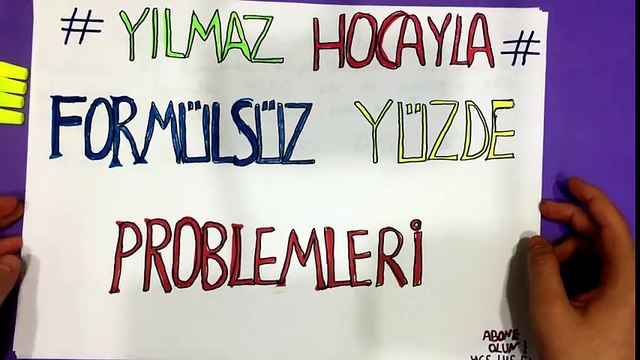 # YILMAZ HOCAYLA #
FORMÜLSÜZ YÜZDE
PROBLEMLERİ
ABONE
OLUM!